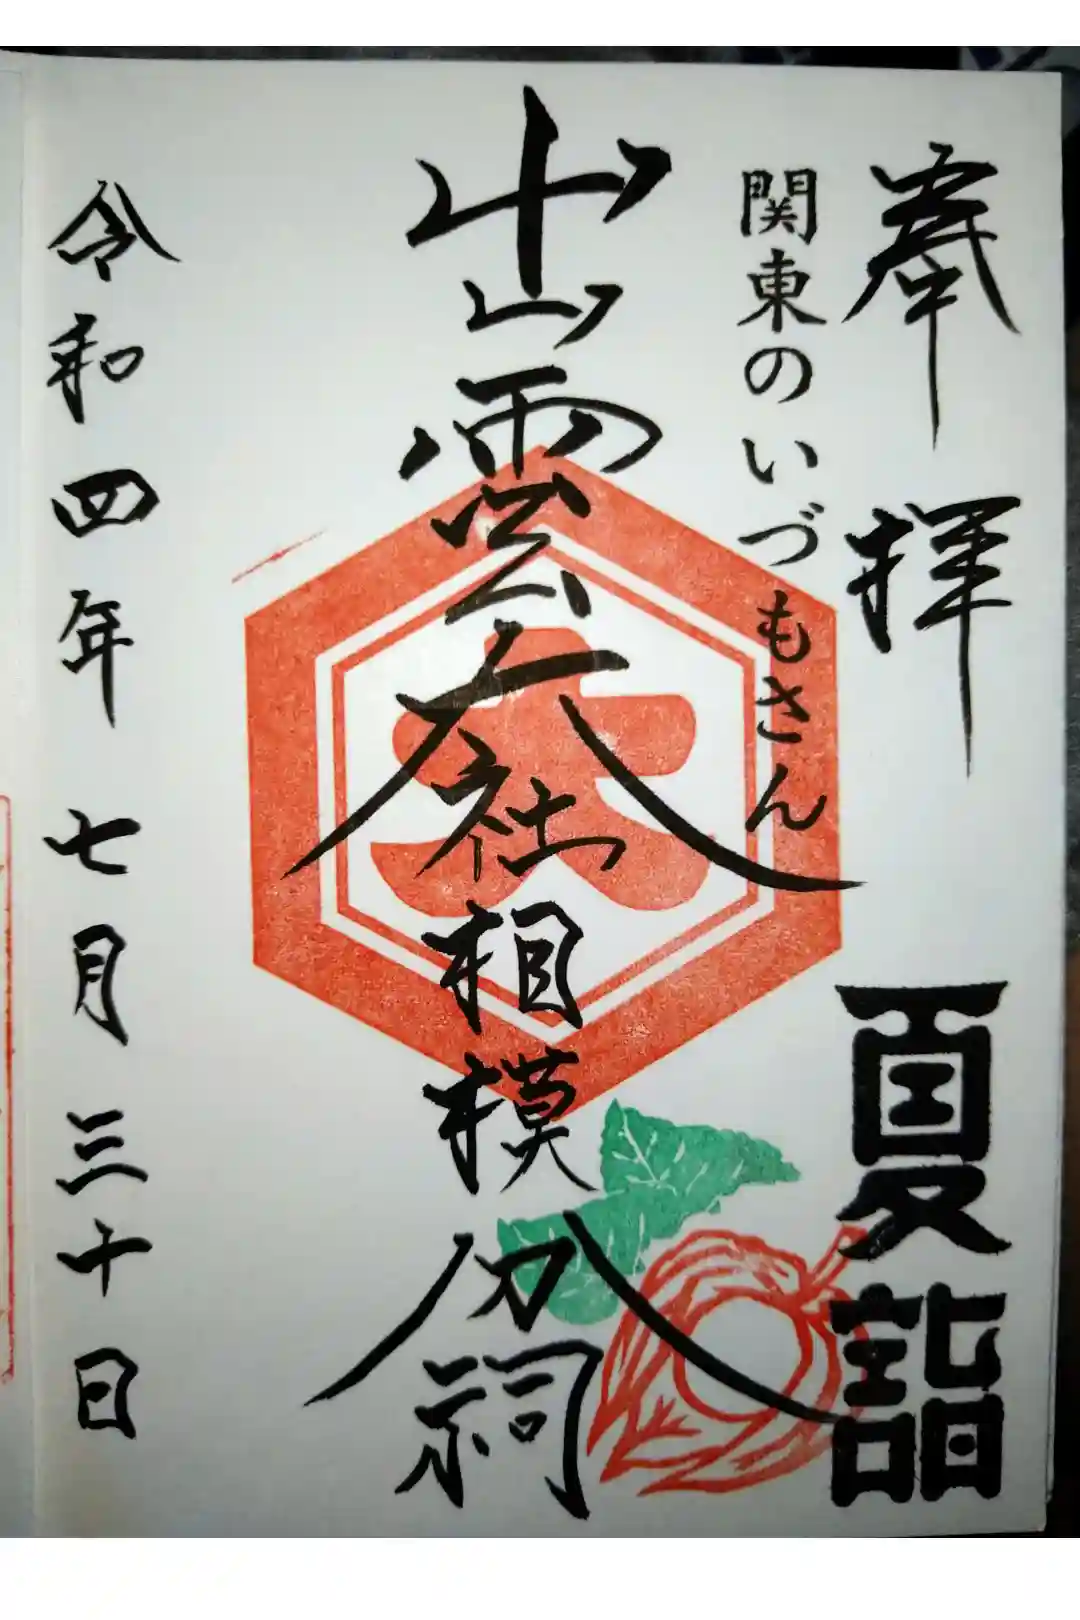 奉拝
夏詣
関東のいづもさん
出雲大社相模分祠
大
令和四年七月三十日